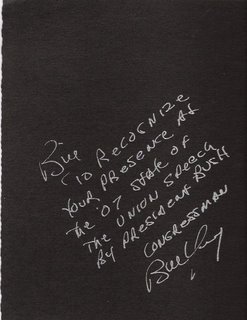 Bill
(TO RECOGNIZE
YOUR PRESENCE AT
THE '07 STATE OF
THE UNION SPEECH
BY PRESIDENT BUSH
CONGRESSMAN
Bill